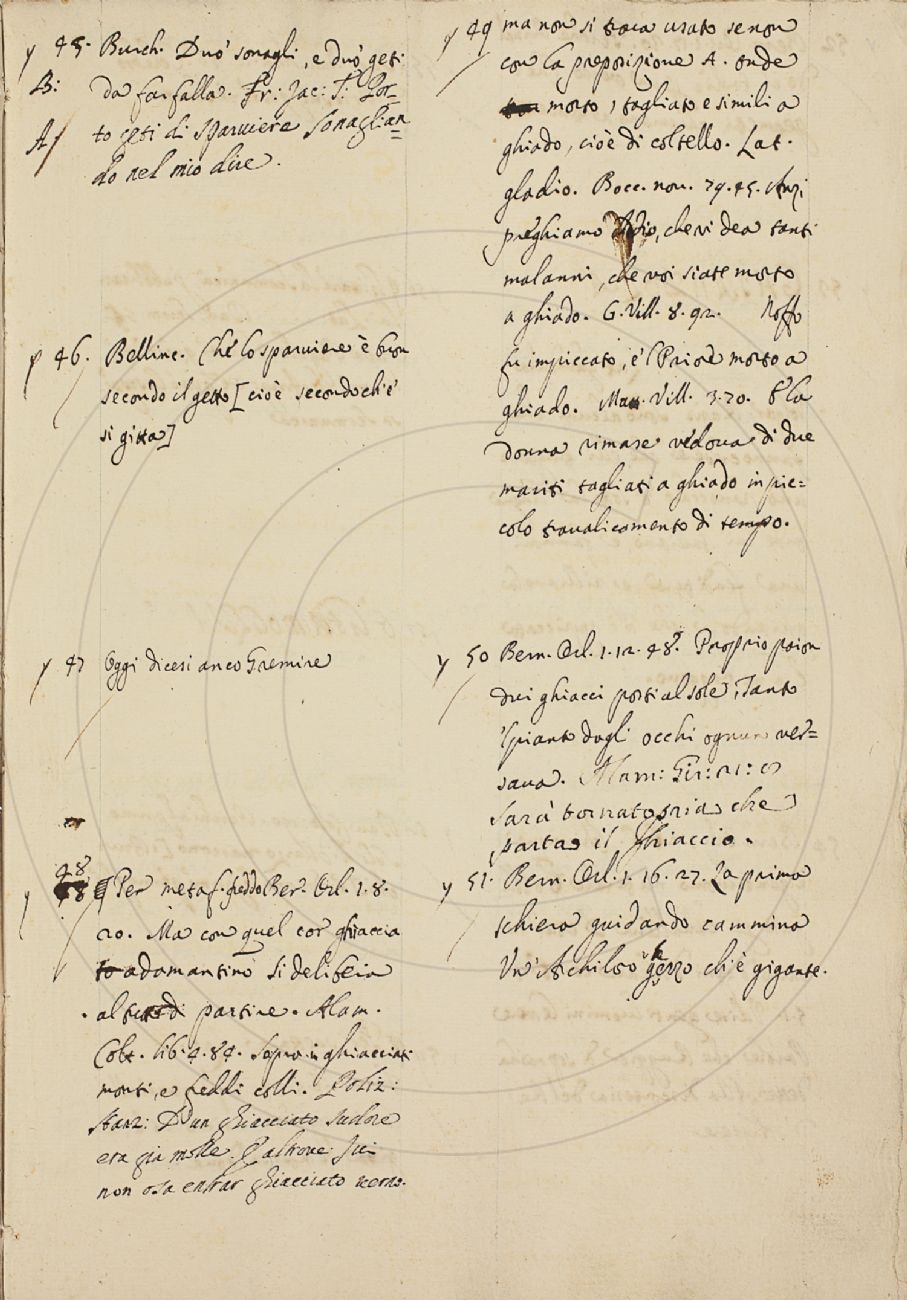 y 45. Burch. Duo' sonagli, e duo geti
B: da farfalla. Fr: Jac: T: Por=
A/ to geti di sparviere Sonaglian=
do nel mio dire.
y 46. Belline. Che lo sparviere è buon
secondo il getto [cioè secondo ch'e'
si gitta]
y 47 Oggi dicesi anco Gremire
48
Per metaf. freddo Ber. Orl. 1. 8.
20. Ma con quel cor ghiaccia
to adamantino si delibera
al tutto di partire. Alam.
Colt. lib. 4. 84. Sopra i ghiacciati
monti, e freddi colli. Poliz:
Stanz: D'un ghiacciato sudore
era già molle. E altrove: Ivi
non osa entrar ghiacciato verno.
y 49 ma non si trova usato se non
con la preposizione A. onde
morto, tagliato e simili a
ghiado, cioè di coltello. Lat.
gladio. Bocc. nov. 79. 45. Anzi
preghiamo Iddio, che vi dea tanti
malanni, che voi siate morto
a ghiado. G. Vill. 8. 92. Noffo
fu impiccato, e 'l Priore morto a
ghiado. Matt. Vill. 3. 70. E la
donna rimase vedova di due
mariti tagliati a ghiado in pic=
colo travalicamento di tempo.
y 50 Bern. Orl. 1. 12. 48. Proprio paion
duei ghiacci posti al sole, Tanto
'l pianto dagli occhi ognun ver=
sava. Alam: Gir: 21: 67
Sarà tornato pria che
parta il ghiaccio.
y 51. Bern. Orl. 1. 16. 27. La prima
schiera guidando cammina
Un' Achilao ghezzo ch'è gigante.